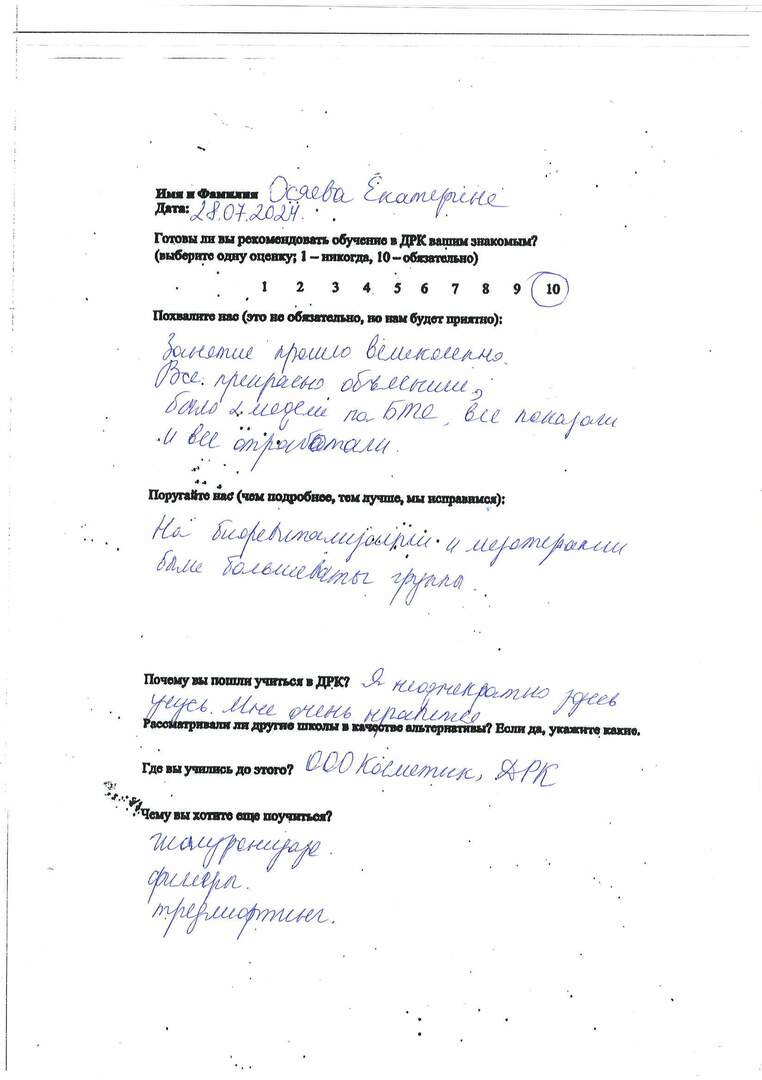 Имя и Фамилия Осяева Екатерине
Дата: 28.07.2024.
Готовы ли вы рекомендовать обучение в ДРК вашим знакомым?
(выберите одну оценку; 1 – никогда, 10 – обязательно)
1 2 3 4 5 6 7 8 9 10
Похвалите нас (это не обязательно, но нам будет приятно):
Занятие прошло великолепно.
Все прекрасно объяснили,
было 2 модели по БТС, все показали
и все отработали.
Поругайте нас (чем подробнее, тем лучше, мы исправимся):
На биоревитализации и мезотерапии
были большеваты группы.
Почему вы пошли учиться в ДРК? Я неоднократно здесь
учусь. Мне очень нравится
Рассматривали ли другие школы в качестве альтернативы? Если да, укажите какие.
Где вы учились до этого? ООО Косметик, ДРК
Чему вы хотите еще поучиться?
гиалуронидаза.
филлеры.
тредлифтинг.